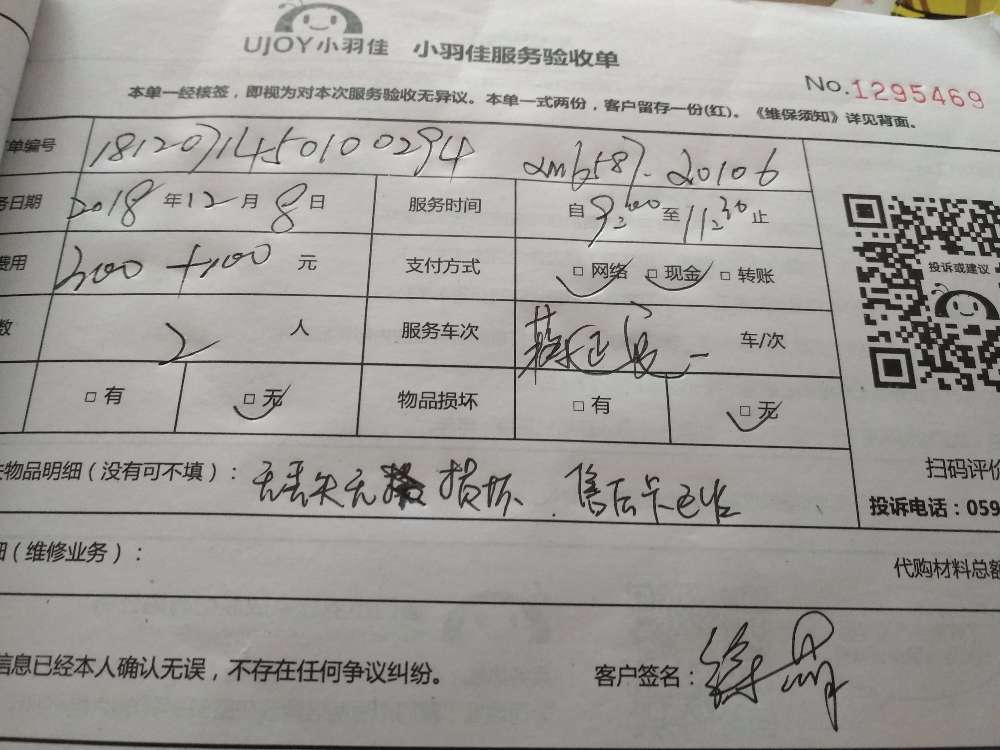 UJOY小羽佳 小羽佳服务验收单
No.1295469
本单一经核签，即视为对本次服务验收无异议。本单一式两份，客户留存一份(红)。《维保须知》详见背面。
单编号 1812071450100294 2m6587-20106
务日期 2018年12月8日 服务时间 自9:00至11:30止
费用 300+100元 支付方式 □网络 □现金 □转账
数 2人 服务车次 车/次
□有 □无 物品损坏 □有 □无
投诉或建议
物品明细（没有可不填）： 无丢失无损坏.售后卡已给
扫码评价
投诉电话：059
细（维修业务）： 代购材料总额
信息已经本人确认无误，不存在任何争议纠纷。 客户签名：